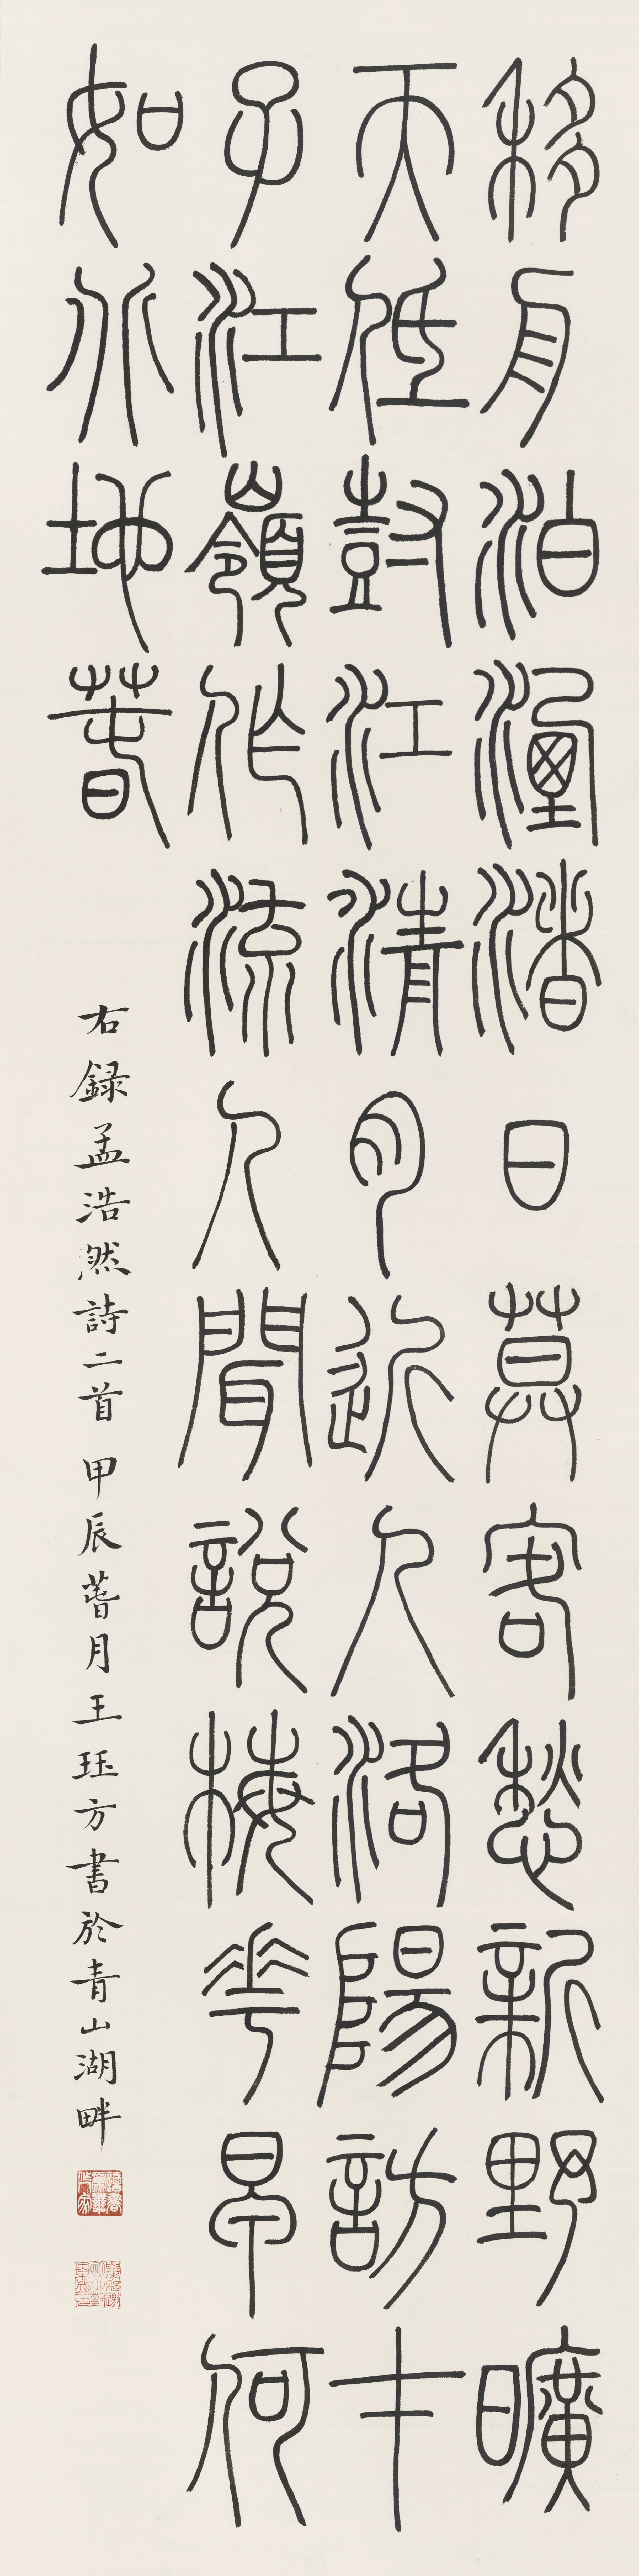 移舟泊煙渚日暮客愁新野曠
天低樹江清月近人洛陽訪才
子江嶺作流人聞說梅花早何
如北地春
右録孟浩然詩二首 甲辰萅月王珏方書於青山湖畔